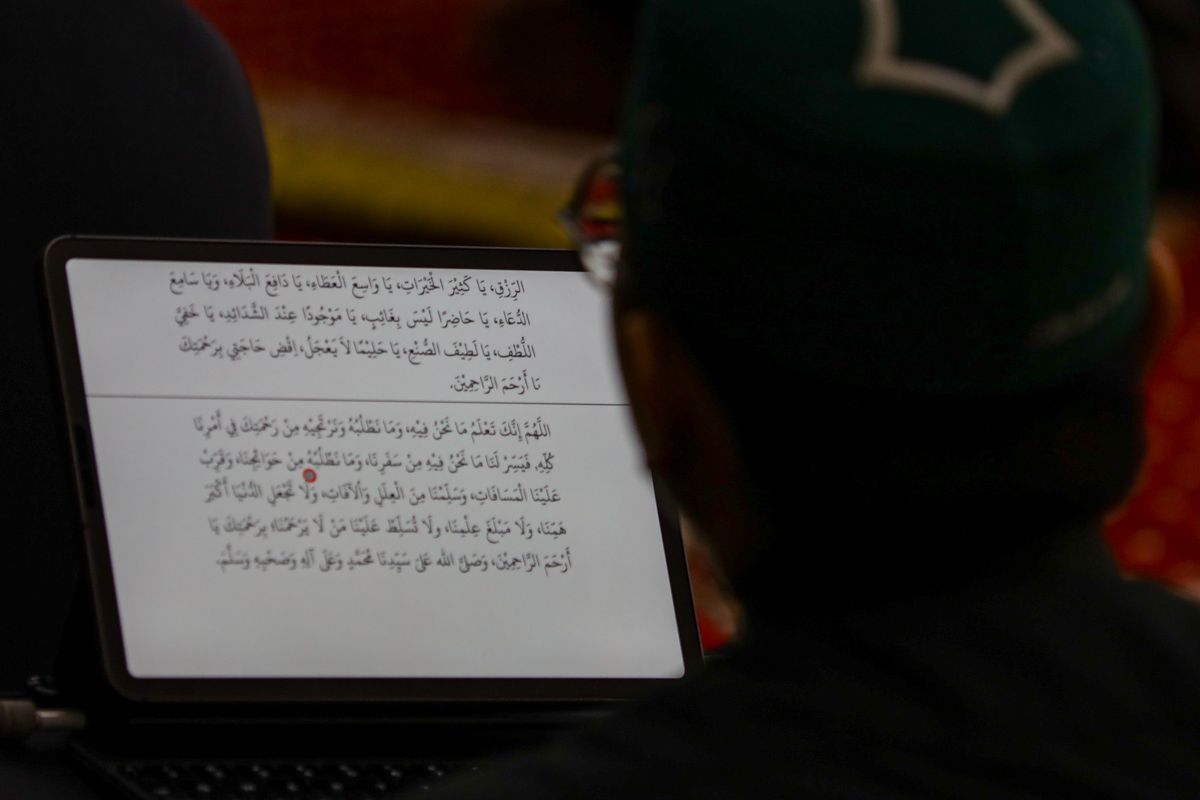 الرِّزْقِ، يَا كَثِيْرَ الْخَيْرَاتِ، يَا وَاسِعَ الْعَطَاءِ، يَا دَافِعَ الْبَلَاءِ، وَيَا سَامِعَ
الدُّعَاءِ، يَا حَاضِرًا لَيْسَ بِغَائِبٍ، يَا مَوْجُودًا عِنْدَ الشَّدَائِدِ، يَا خَفِيَّ
اللُّطْفِ، يَا لَطِيْفَ الصُّنْعِ، يَا حَلِيْمًا لاَ يَعْجَلُ، اِقْضِ حَاجَتِي بِرَحْمَتِكَ
يَا أَرْحَمَ الرَّاحِمِيْنَ.
اللَّهُمَّ إِنَّكَ تَعْلَمُ مَا نَحْنُ فِيْهِ، وَمَا نَطْلُبُهُ وَنَرْتَجِيْهِ مِنْ رَحْمَتِكَ فِي أَمْرِنَا
كُلِّهِ. فَيَسِّرْ لَنَا مَا نَحْنُ فِيْهِ مِنْ سَفَرِنَا، وَمَا نَطْلُبُهُ مِنْ حَوَائِجِنَا، وَقَرِّبْ
عَلَيْنَا الْمَسَافَاتِ، وَسَلِّمْنَا مِنَ الْعِلَلِ وَالْآفَاتِ، وَلَا تَجْعَلِ الدُّنْيَا أَكْبَرَ
هَمِّنَا، وَلَا مَبْلَغَ عِلْمِنَا، ولَا تُسَلِّطْ عَلَيْنَا مَنْ لَا يَرْحَمُنَا، بِرَحْمَتِكَ يَا
أَرْحَمَ الرَّاحِمِيْنَ، وَصَلَّى الله عَلَى سَيِّدِنَا مُحَمَّدٍ وَعَلَى آلِهِ وَصَحْبِهِ وَسَلَّمَ.